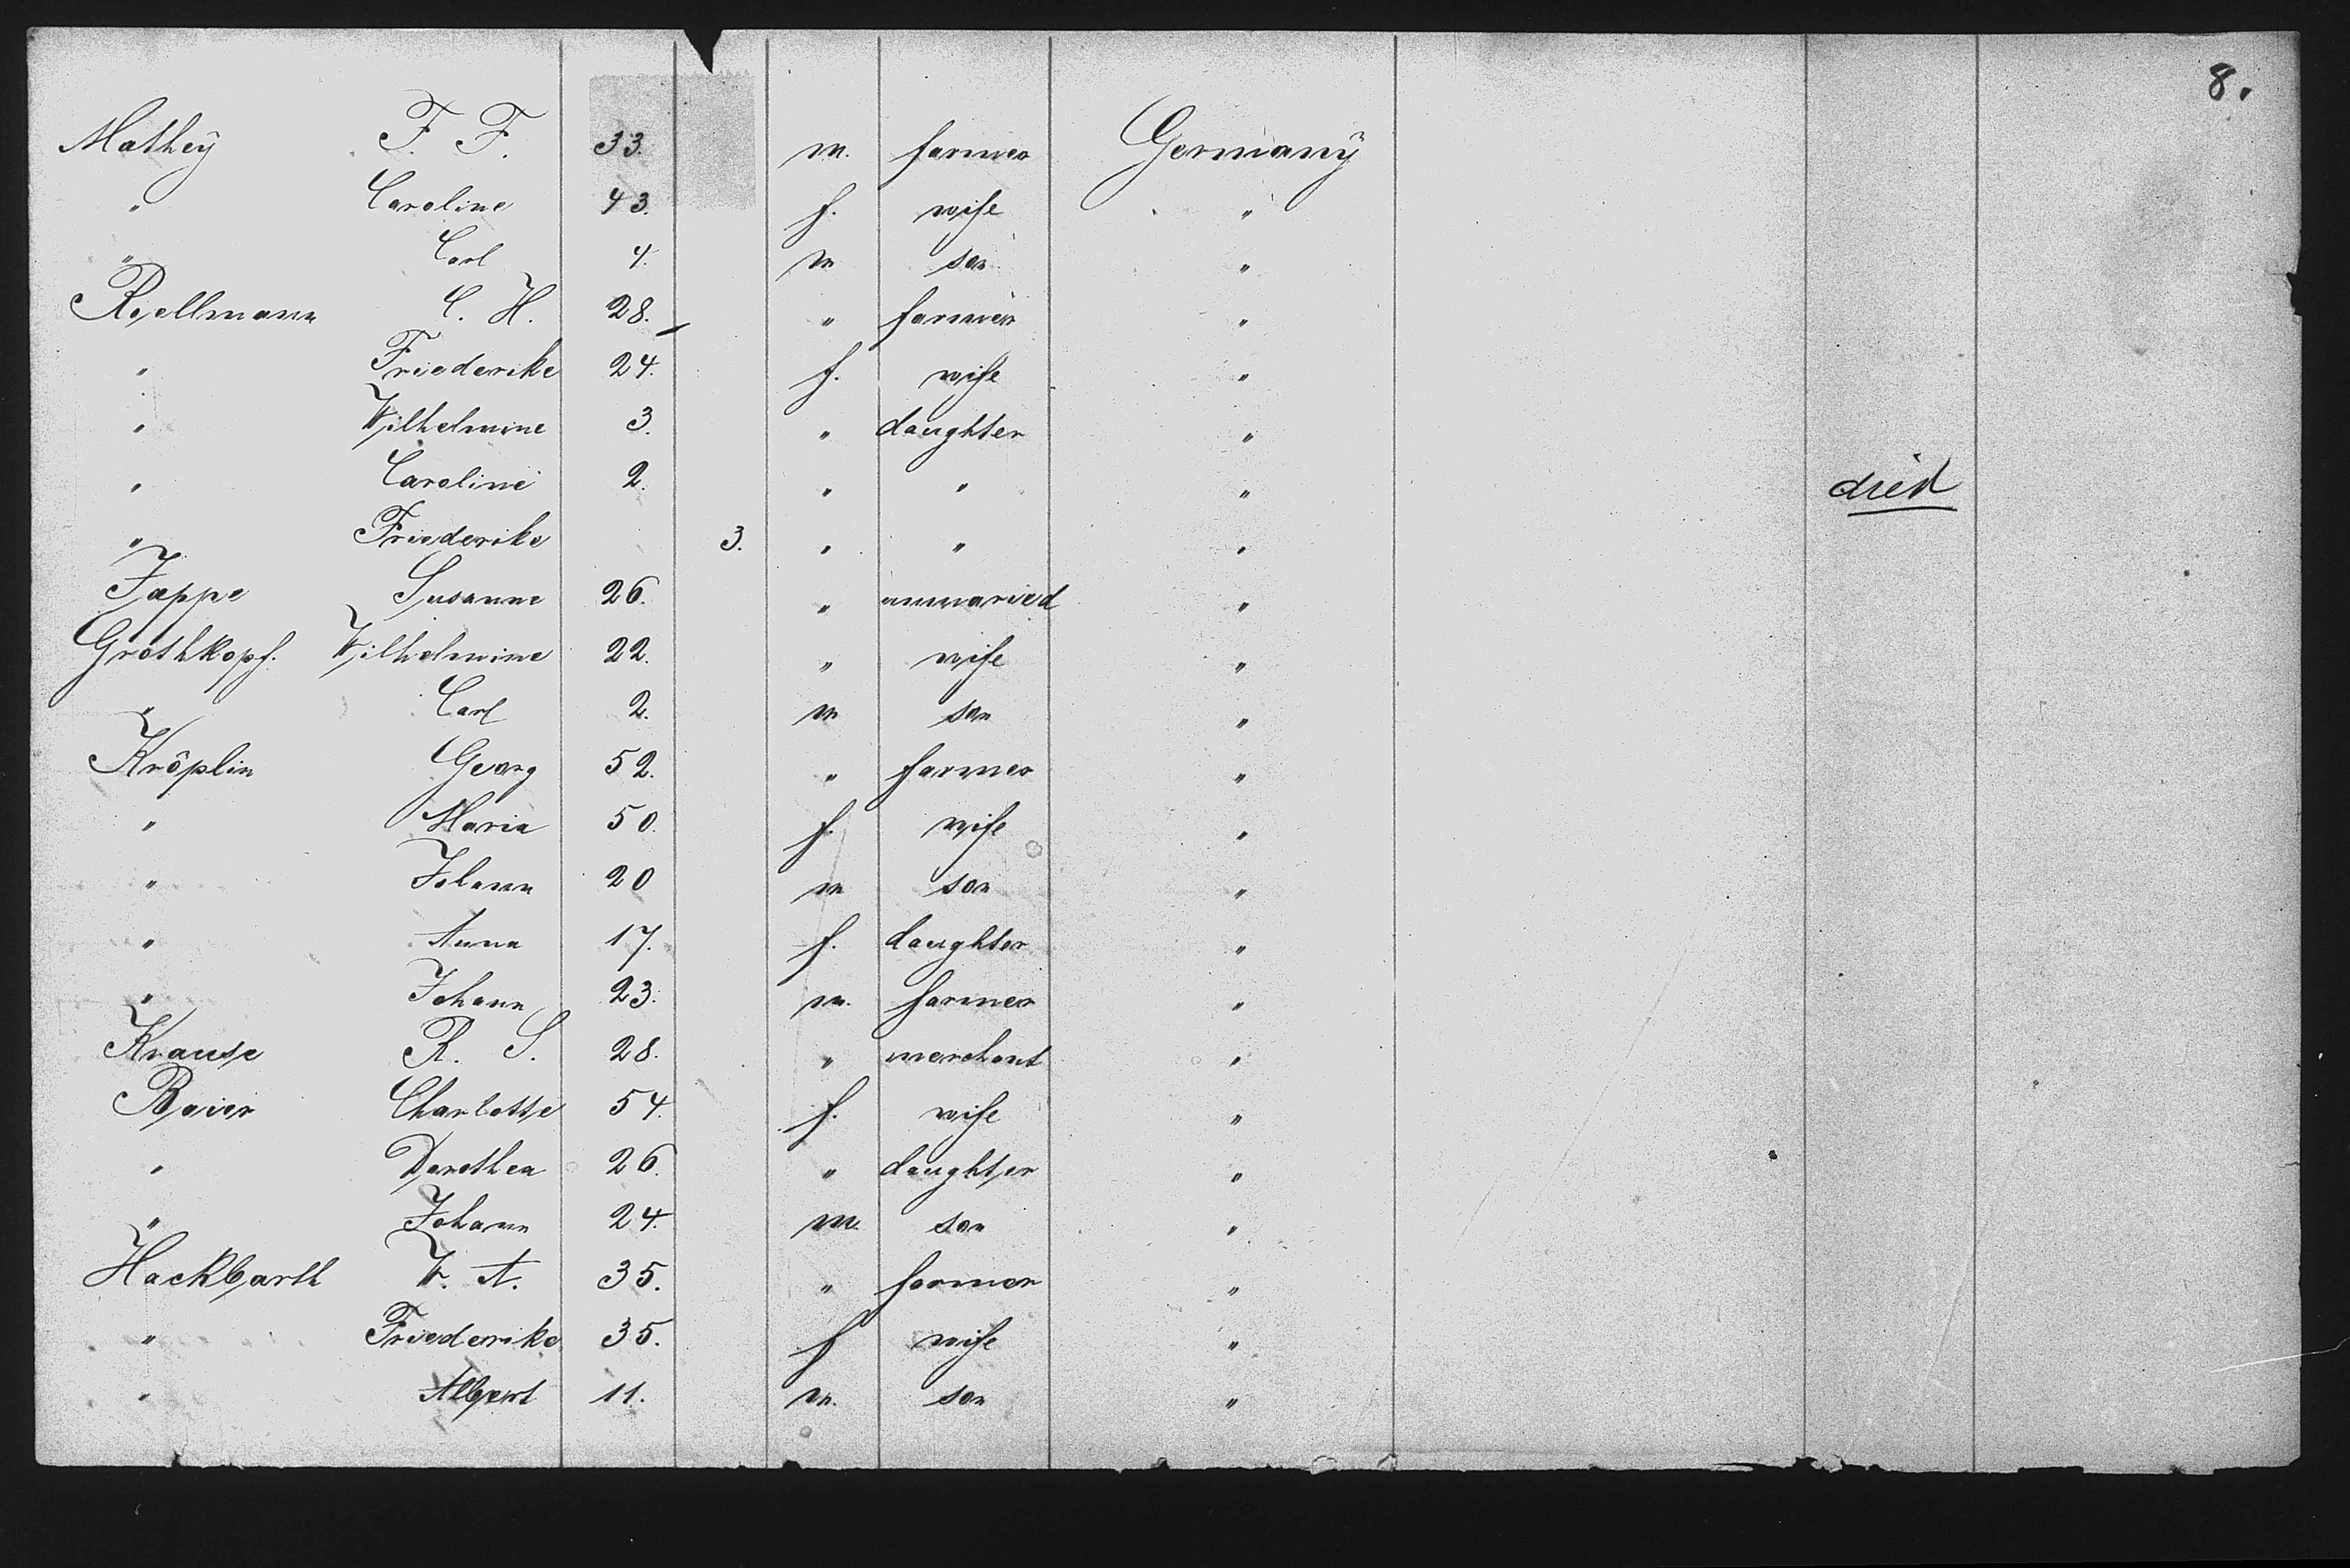 8.
Mathey F. F. 33. m. farmer Germany
" Caroline 43. f. wife "
" Carl 4. m son "
Rellmann C. H. 28. " farmer "
" Friederike 24. f. wife "
" Wilhelmine 3. " daughter "
" Caroline 2. " " " died
" Friederike 3. " " "
Jappe Susanne 26. " unmaried "
Grothkopf. Wilhelmine 22. " wife "
" Carl 2. m son "
Kröplin Georg 52. " farmer "
" Maria 50. f. wife "
" Johann 20 m son "
" Anna 17. f. daughter "
" Johann 23. m. farmer "
Krause R. S. 28. " merchant "
Baier Charlotte 54. f. wife "
" Dorothea 26. " daughter "
" Johann 24. m. son "
Hackbarth W. A. 35. " farmer "
" Friederike 35. f wife "
" Albert 11. m. son "